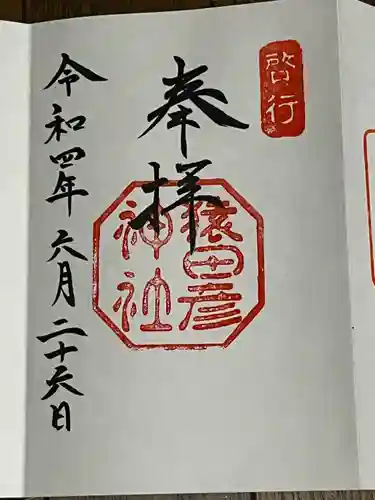 啓行
奉拝
猿田彦
神社
令和四年六月二十六日